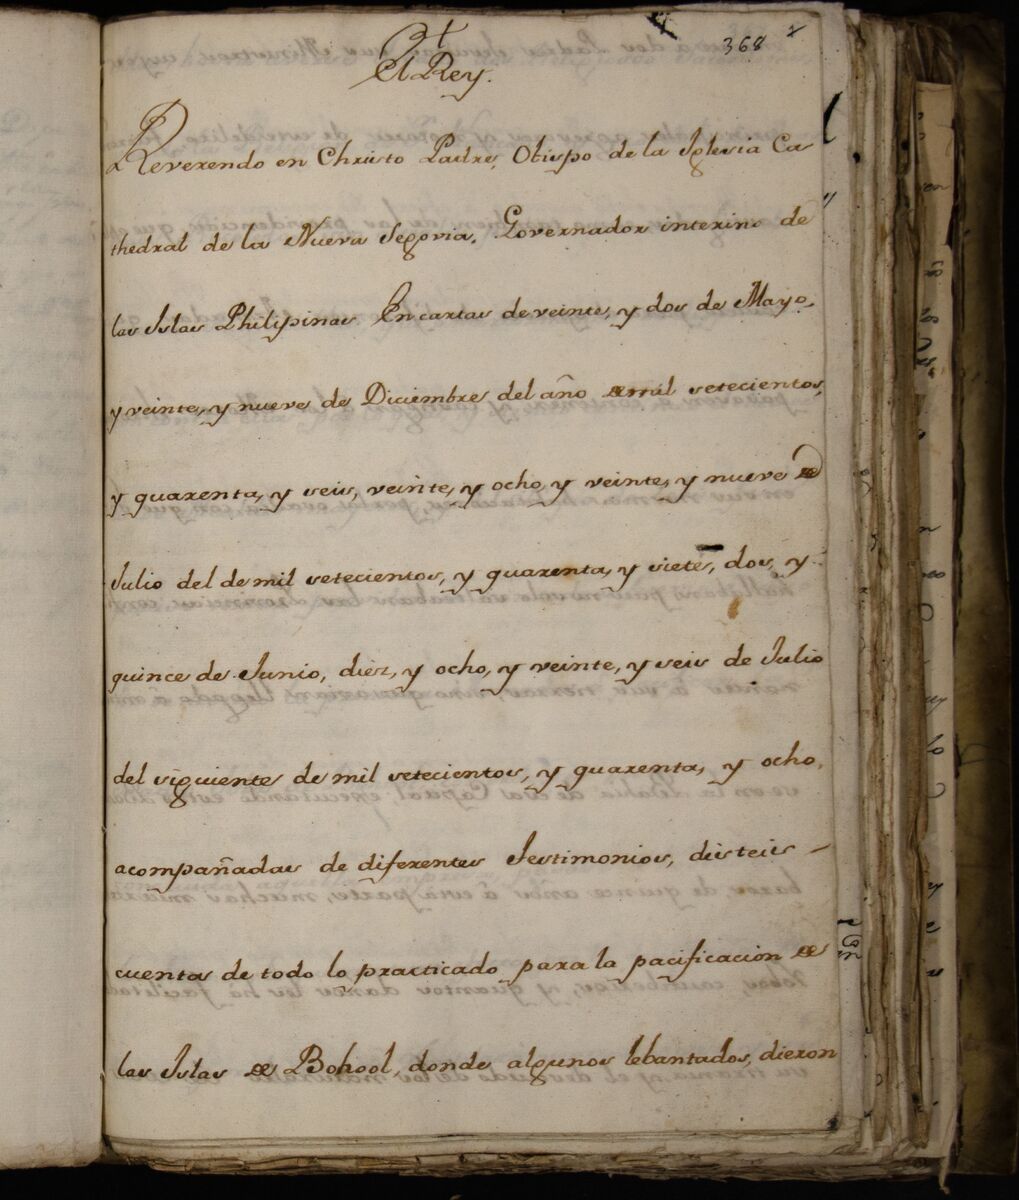 368
El Rey.
Reverendo en Christo Padre, Obispo de la Iglesia Ca
thedral de la Nueva Segovia, Governador interino de
las Islas Philipinas En cartas de veinte, y dos de Mayo,
y veinte, y nueve de Diciembre del año de mil setecientos,
y quarenta, y seis, veinte, y ocho, y veinte, y nueve de
Julio del de mil setecientos, y quarenta, y siete, dos, y
quince de Junio, diez, y ocho, y veinte, y seis de Julio
del siguiente de mil setecientos, y quarenta, y ocho,
acompañadas de diferentes Testimonios, disteis -
cuenta de todo lo practicado para la pacificacion de
las Islas de Bohool, donde algunos lebantados, dieron